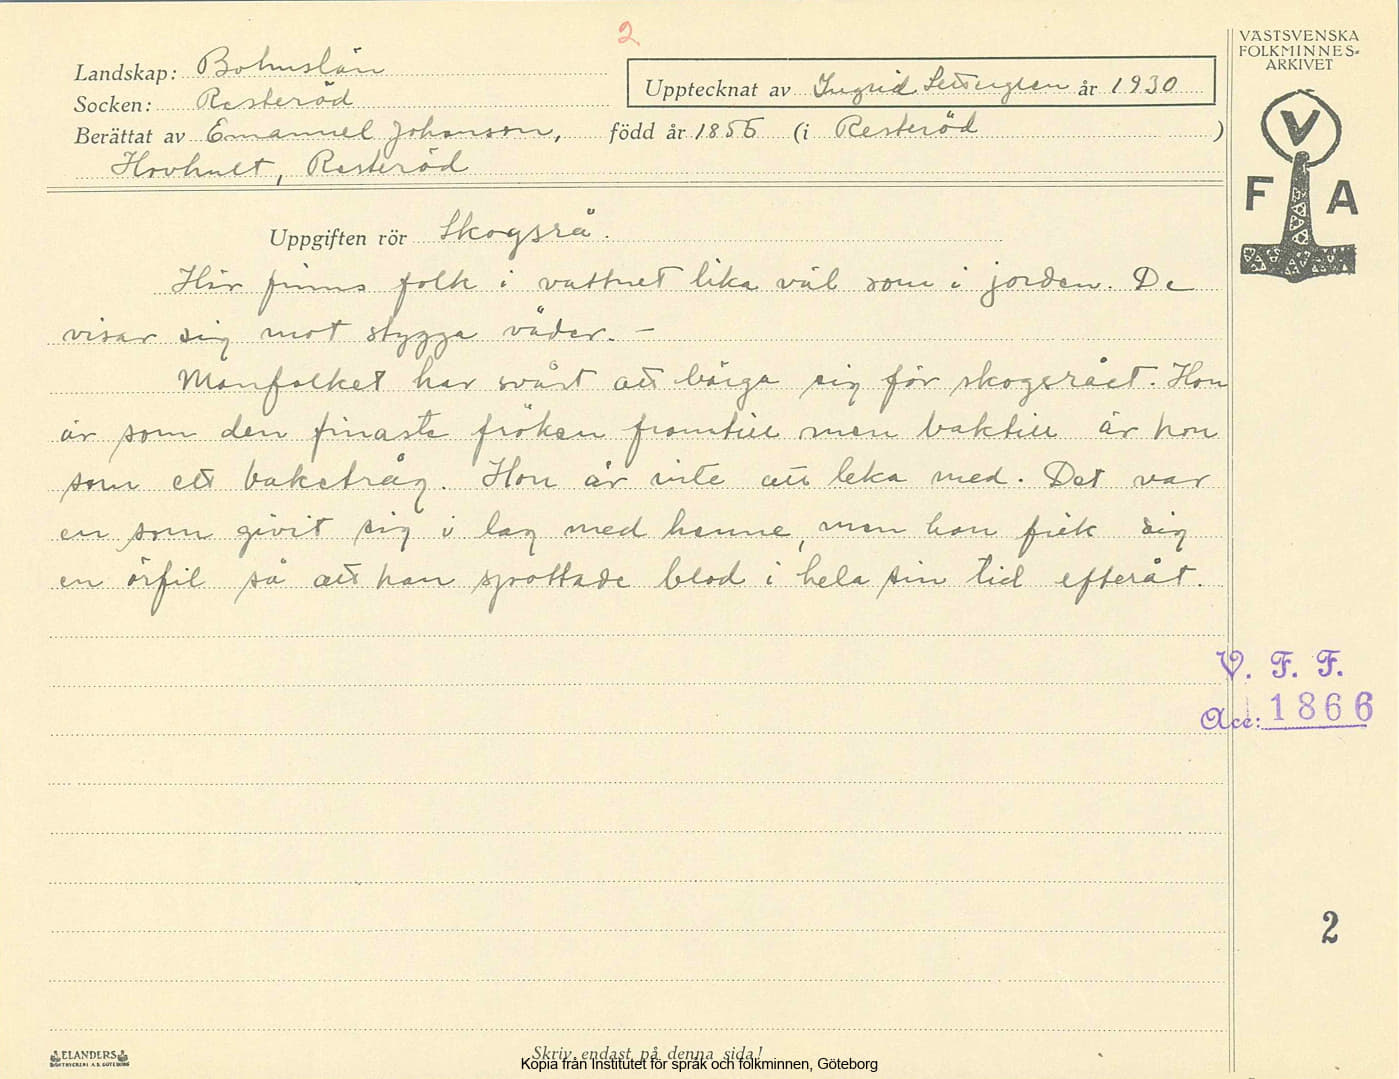 2
VÄSTSVENSKA
FOLKMINNES=
ARKIVET
Landskap: Bohuslän
Upptecknat av Ingrid år 1930
Socken: Resteröd
Berättat av Emanuel Johanson, född år 1856 (i Resteröd )
Hovhult, Resteröd
V
F A
Uppgiften rör Skogsrå.
Här finns folk i vattnet lika väl som i jorden. De
visar sig mot stygga väder. –
Manfolket har svårt att bärga sig för skogsrået. Hon
är som den finaste fröken framtill men baktill är hon
som ett baketråg. Hon är inte att leka med. Det var
en som givit sig i lag med henne, men han fick sig
en örfil så att han spottade blod i hela sin tid efteråt.
V. F. F.
Acc: 1866
2
ELANDERS
BOKTRYCKERI A.B. GÖTEBORG
Skriv endast på denna sida!
Kopia från Institutet för språk och folkminnen, Göteborg